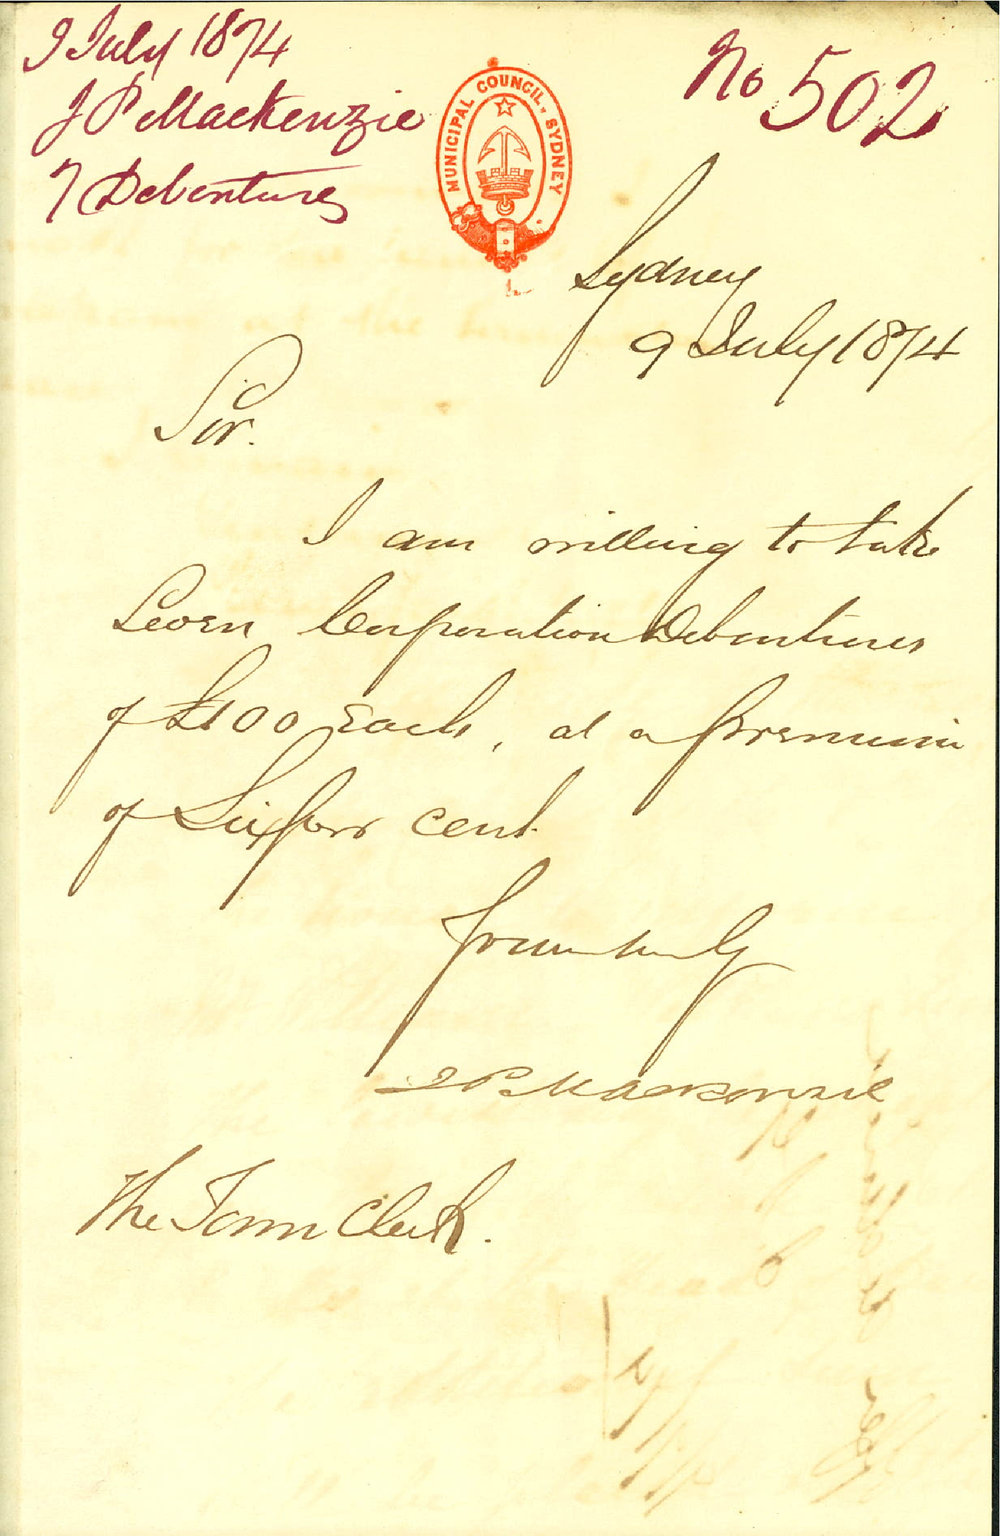 9 July 1874
J P Mackenzie
7 Debentures
No 502
MUNICIPAL COUNCIL, SYDNEY
Sydney
9 July 1874
Sir.
I am willing to take
Seven Corporation Debentures
of £100 Each, at a premium
of Six per cent
Yours truly
J P Mackenzie
The Town Clerk.